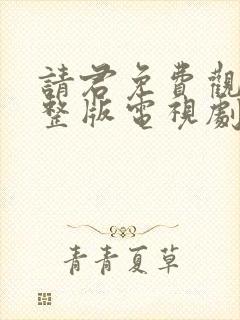 請君免費觀
整版電視劇
青青夏草